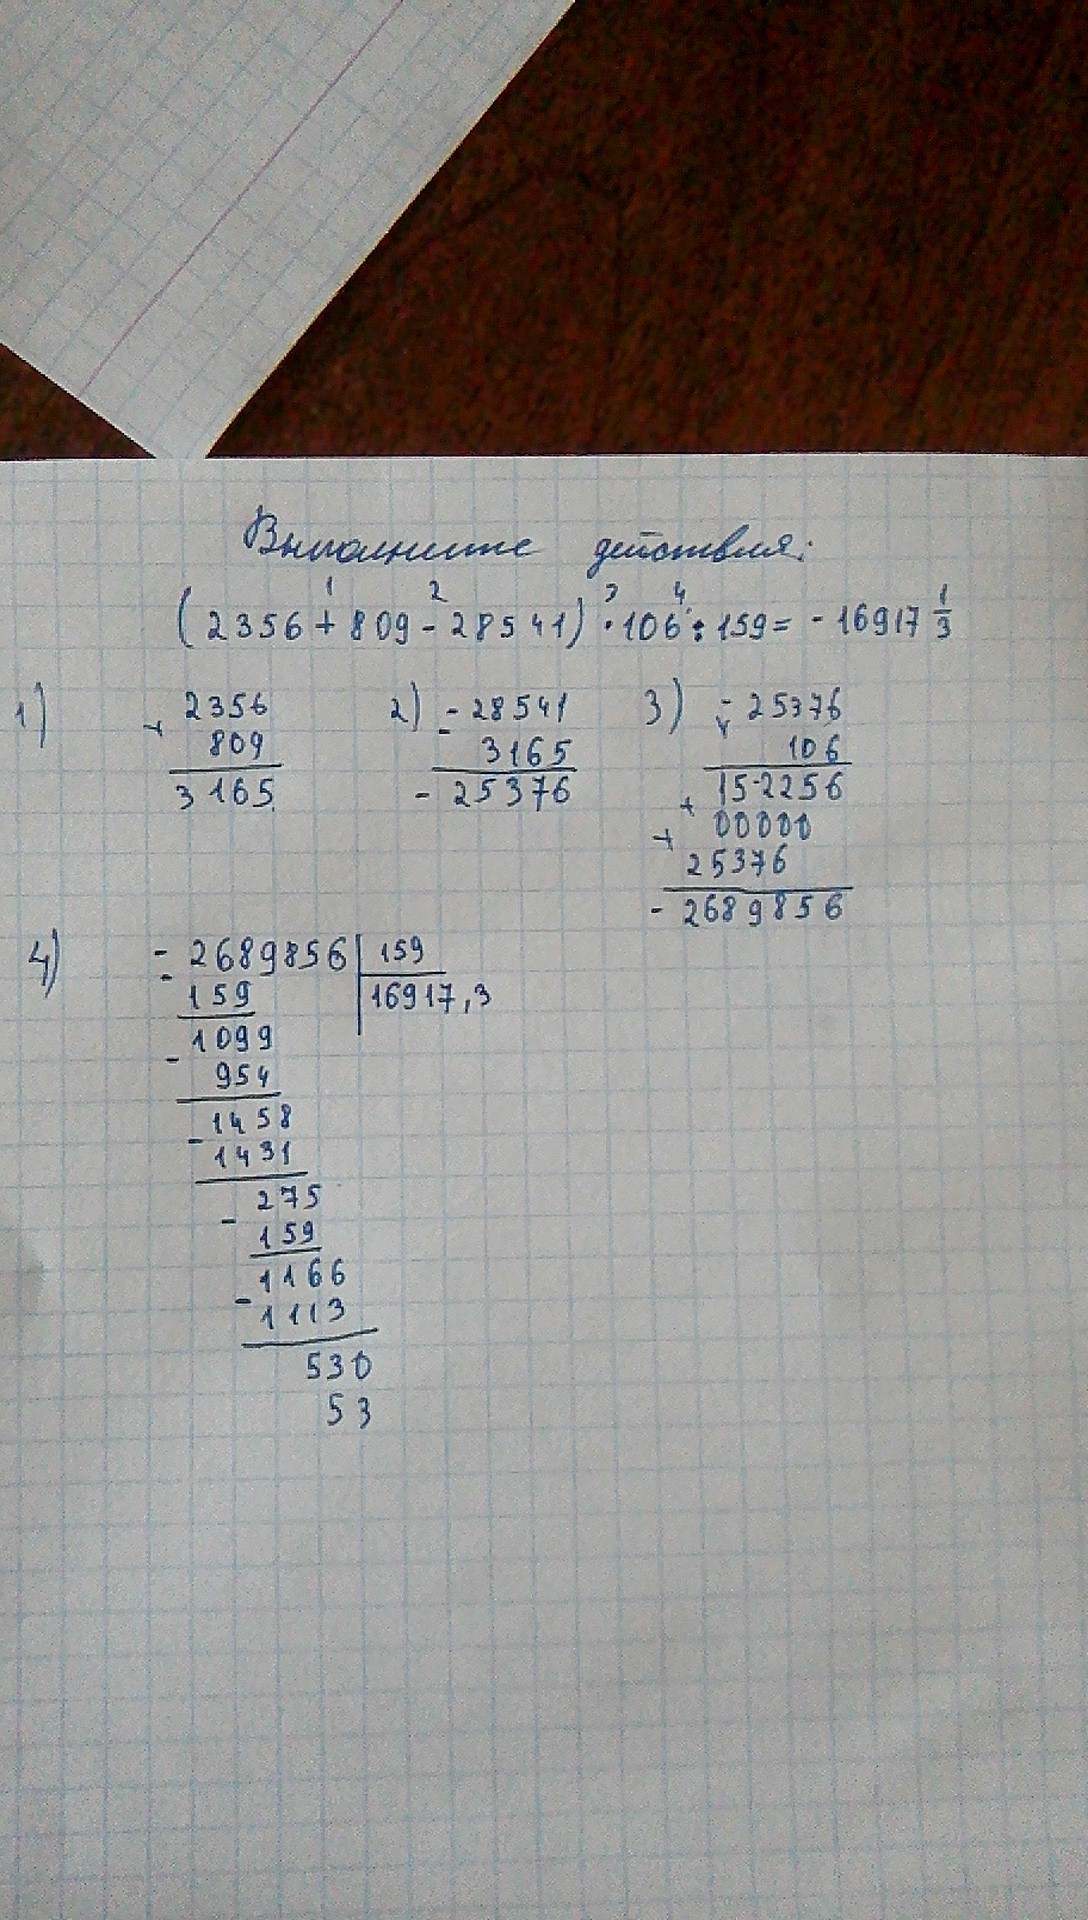 Выполните действия:
1 2 3 4
(2356 + 809 - 28541) · 106 : 159 = - 16917 1/3
1) + 2356
809
3165
2) - 28541
- 3165
- 25376
3) - 25376
× 106
+ 152256
+ 00000
25376
- 2689856
4) - 2689856 | 159
- 159 | 16917,3
1099
- 954
1458
- 1431
275
- 159
1166
- 1113
530
53